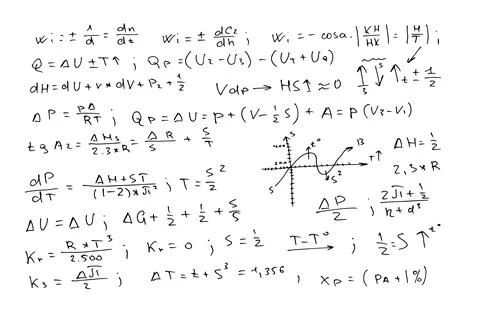 Wi = ± 1/d = dn/dt ; Wi = ± dC2/dh ; Wi = - cosa · |KH/HK| = |H/T| ;
Q = ΔU ± T↑ ; QP = (U2 - U3) - (U4 + U9) ↑ S ↓ S ↑ t ± 1/2
dH = dU + v * dV + P2 + 1/2 Vdp → HS↑ ≈ 0
ΔP = PΔ/RT ; QP = ΔU = P + (V - 1/2 S) + A = P (V3 - V1)
tg A2 = ΔH3/2.3*R = ΔR/S + S/T ΔH = 1/2
2,3 * R
S t° B T↑ S S²
dP/dT = ΔH + ST/(1-2) * JI² ; T = S²/2 ΔP/2 ; 2JI + 1/2 / n + d³
ΔU = ΔU ; ΔG + 1/2 + 1/2 + S/S
Kr = R * T³/2.500 ; Kr = 0 ; S = 1/2 T - T° → ; 1/2 = S ↑ t°
K3 = ΔJI/2 ; ΔT = t + S³ = 1,356 ; XP = (PA + 1%)